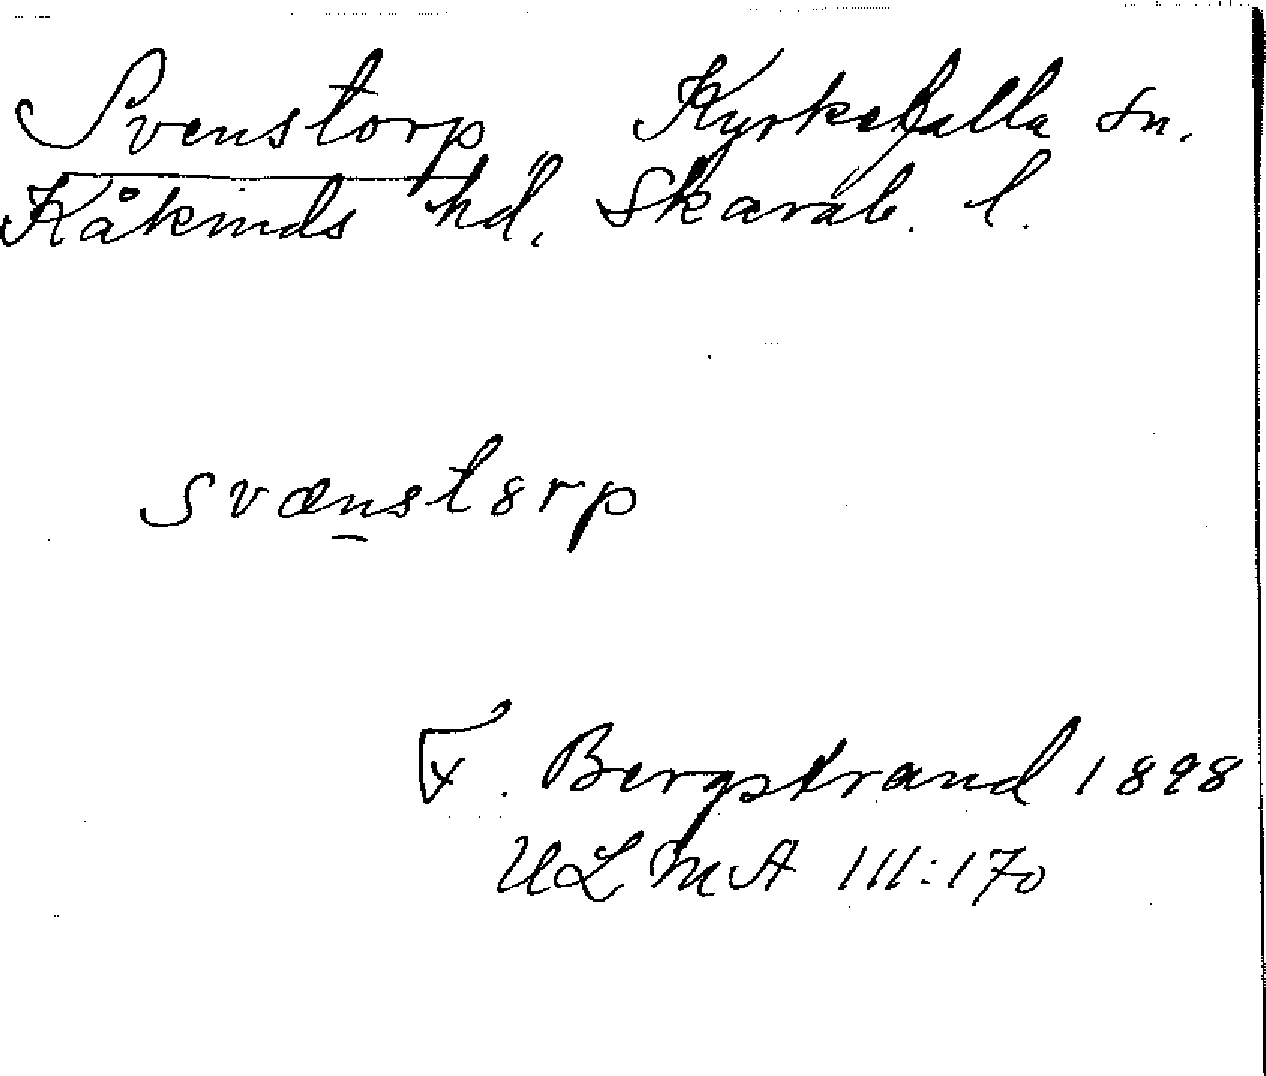 Svenstorp Kyrkefalla sn.
Kåkinds hd. Skarab. l.
svænst8rp
F. Bergstrand 1898
ULMA 111:170